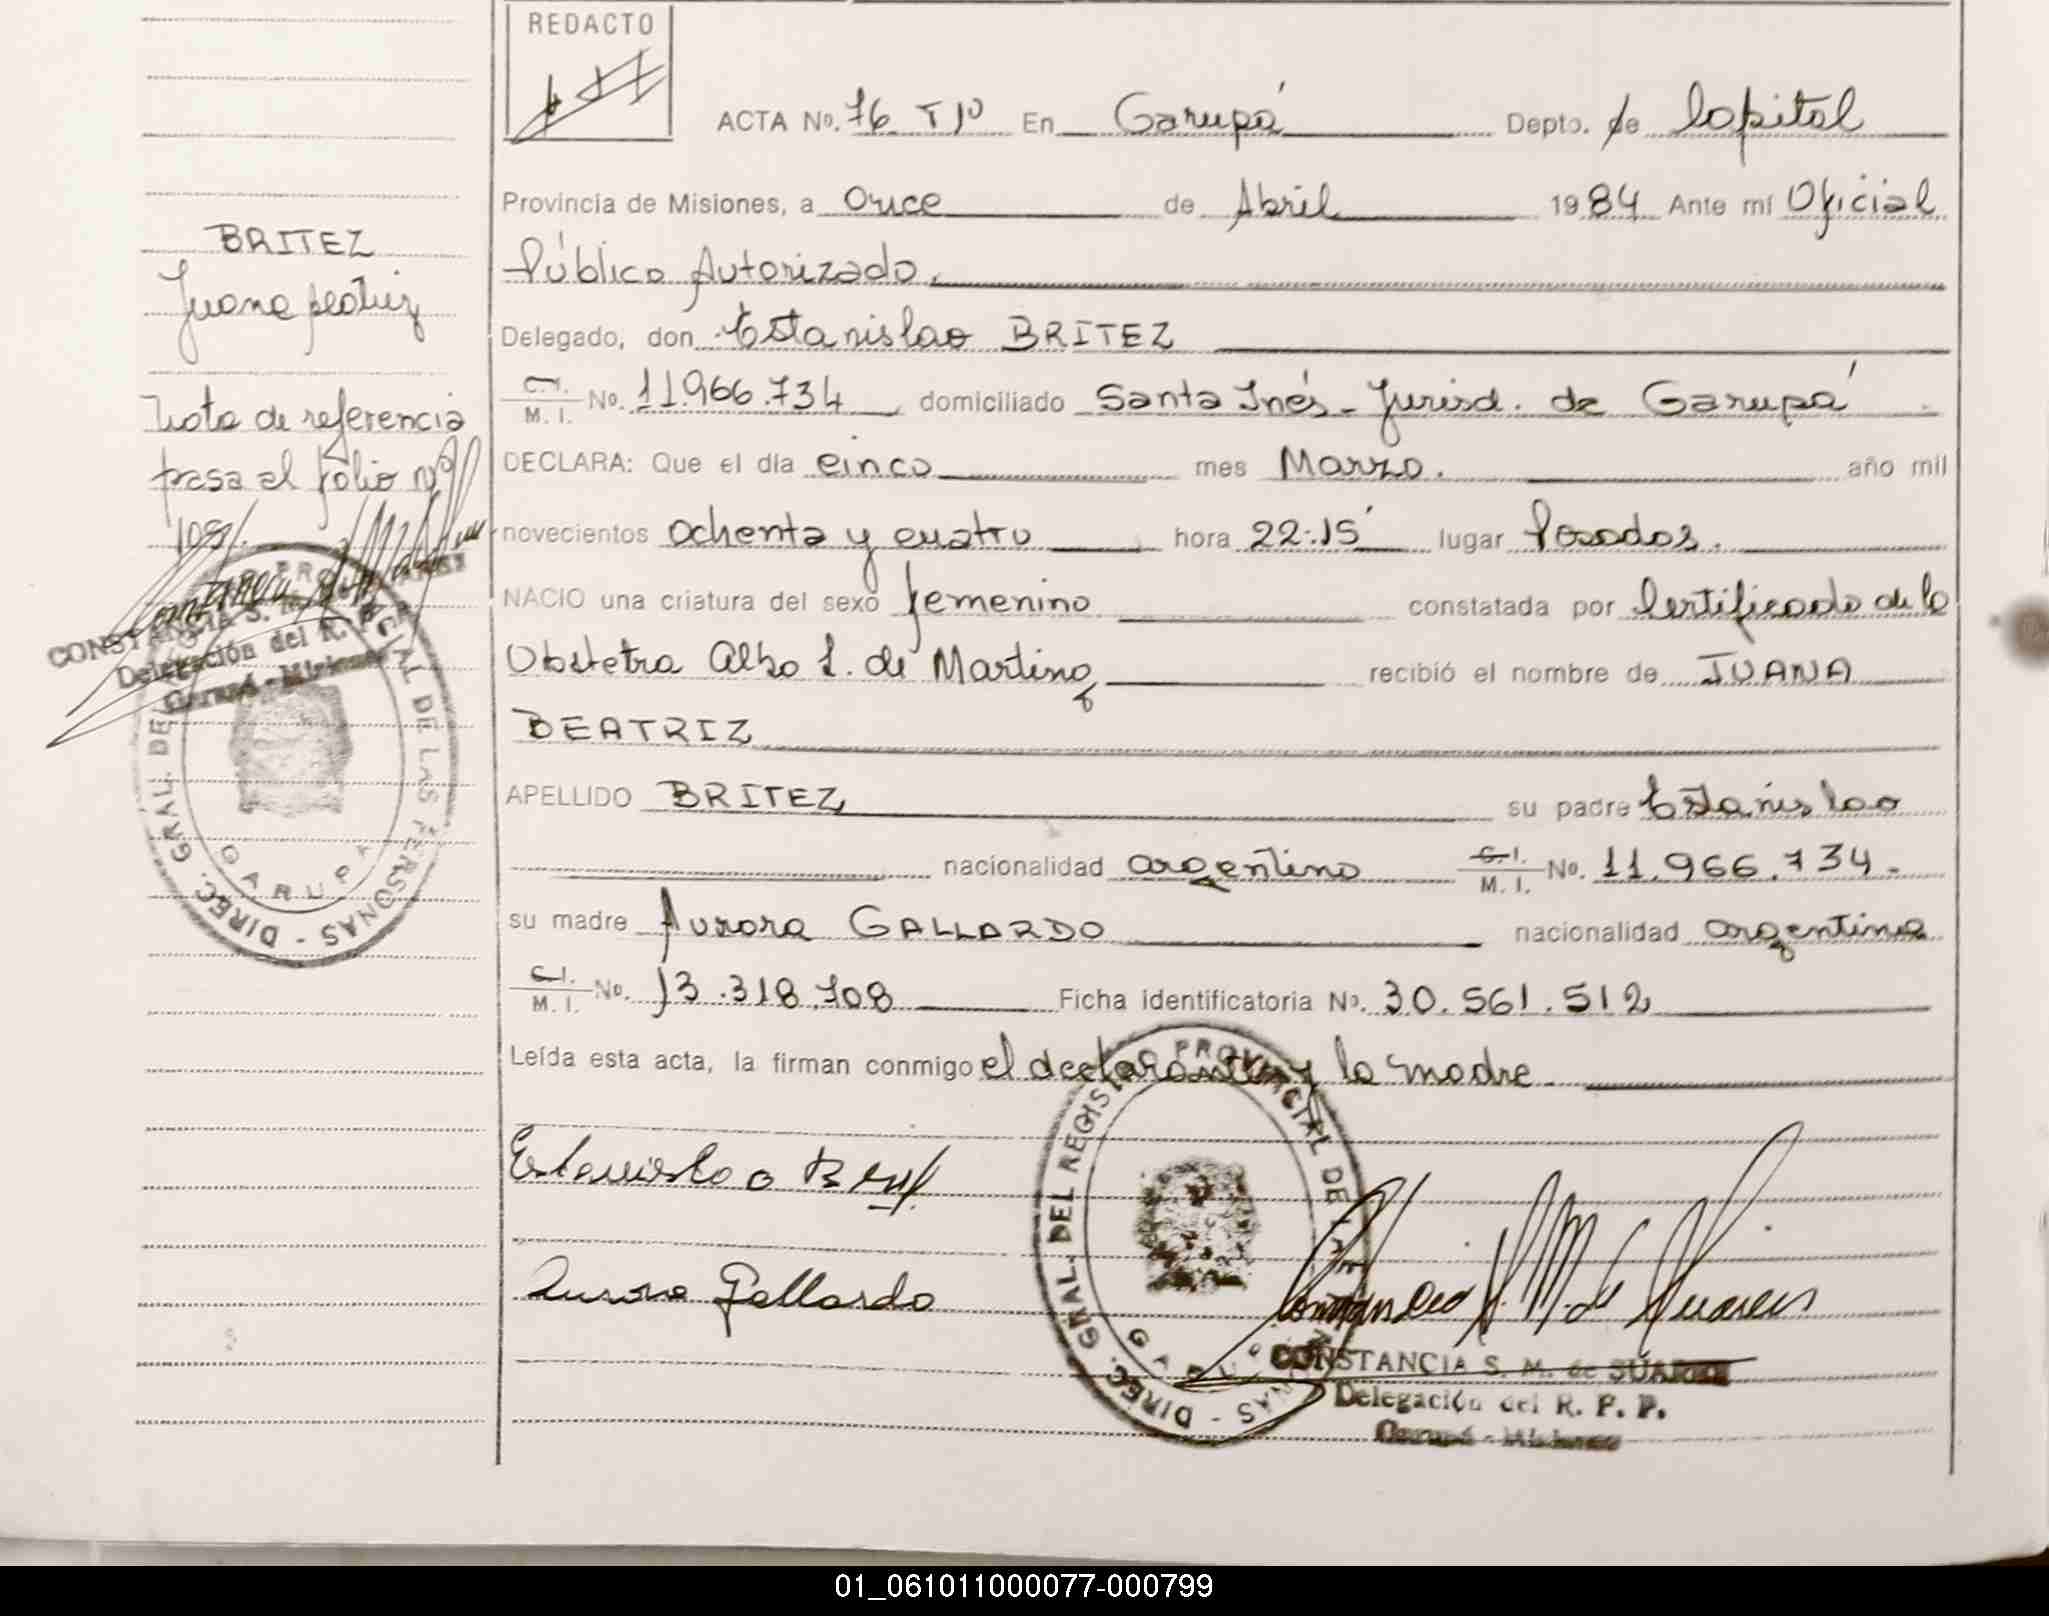 REDACTO
ACTA No. 76 Tº Iº En Garupá Depto. de Capital
Provincia de Misiones, a Once de Abril 1984 Ante mí Oficial
Público Autorizado.
Delegado, don Estanislao BRITEZ
C.I. M. I. No. 11.966.734 domiciliado Santa Inés - Jurisd. de Garupá
DECLARA: Que el día cinco mes Marzo. año mil
novecientos ochenta y cuatro hora 22:15 lugar Posadas.
NACIO una criatura del sexo femenino constatada por Certificado de la
Obstetra Alba L. de Martinez recibió el nombre de JUANA
BEATRIZ
APELLIDO BRITEZ su padre Estanislao
nacionalidad argentino C.I. M. I. No. 11.966.734.
su madre Aurora GALLARDO nacionalidad argentina
C.I. M. I. No. 13.318.708 Ficha identificatoria No. 30.561.512
Leída esta acta, la firman conmigo el declarante y la madre.
Estanislao
Aurora Gallardo
DIREC. GRAL. DEL REGISTRO PROVINCIAL DE LAS PERSONAS -
GARUPA
CONSTANCIA S. M. de SUAREZ
Delegación del R. P. P.
Garupá - Misiones
BRITEZ
Juana Beatriz
Nota de referencia
pasa al folio Nº
108
CONSTANCIA S. M. de SUAREZ
Delegación del R. P. P.
Garupá - Misiones
DIREC. GRAL. DEL REGISTRO PROVINCIAL DE LAS PERSONAS -
GARUPA
01_061011000077-000799